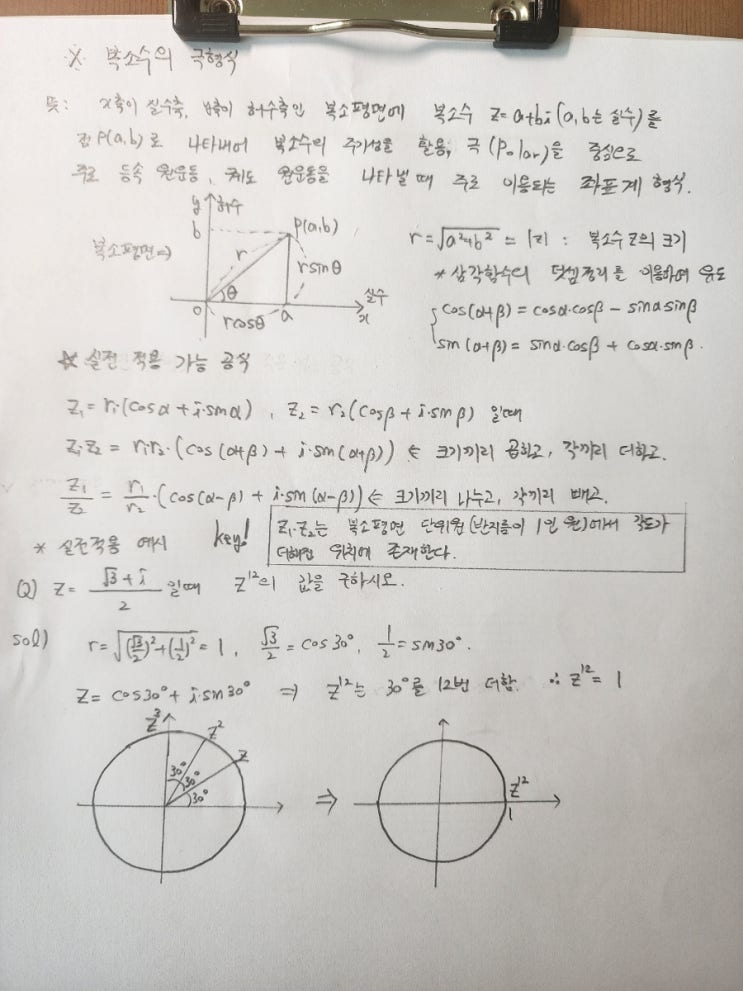 ※ 복소수의 극형식
뜻: x축이 실수축, y축이 허수축인 복소평면에 복소수 z=a+bi (a,b는 실수)를
점 P(a,b)로 나타내어 복소수의 주기성을 활용, 극(Polar)을 중심으로
주로 등속 원운동, 궤도 원운동을 나타낼 때 주로 이용되는 좌표계 형식.
y 허수
b P(a,b)
복소평면⇒ r r sinθ
θ
0 r cosθ a 실수 x
r=√(a²+b²) = |z| : 복소수 z의 크기
* 삼각함수의 덧셈정리를 이용하여 유도
cos(α+β) = cosα·cosβ - sinα sinβ
sin(α+β) = sinα·cosβ + cosα·sinβ.
☆ 실전 적용 가능 공식
z₁ = r₁·(cosα + i·sinα), z₂ = r₂(cosβ + i·sinβ) 일때
z₁·z₂ = r₁r₂·(cos(α+β) + i·sin(α+β)) ← 크기끼리 곱하고, 각끼리 더하고.
z₁/z₂ = r₁/r₂·(cos(α-β) + i·sin(α-β)) ← 크기끼리 나누고, 각끼리 빼고.
* 실전적용 예시
key!
z₁·z₂는 복소평면 단위원(반지름이 1인 원)에서 각도가
더해진 위치에 존재한다.
Q) z = (√3+i)/2 일때 z¹²의 값을 구하시오.
sol) r=√((√3/2)²+(1/2)²) = 1, √3/2 = cos30°, 1/2 = sin30°.
z = cos30° + i·sin30° ⇒ z¹²는 30°를 12번 더함. ∴ z¹² = 1
z³ z² z
30° 30° 30°
⇒
z¹²
1